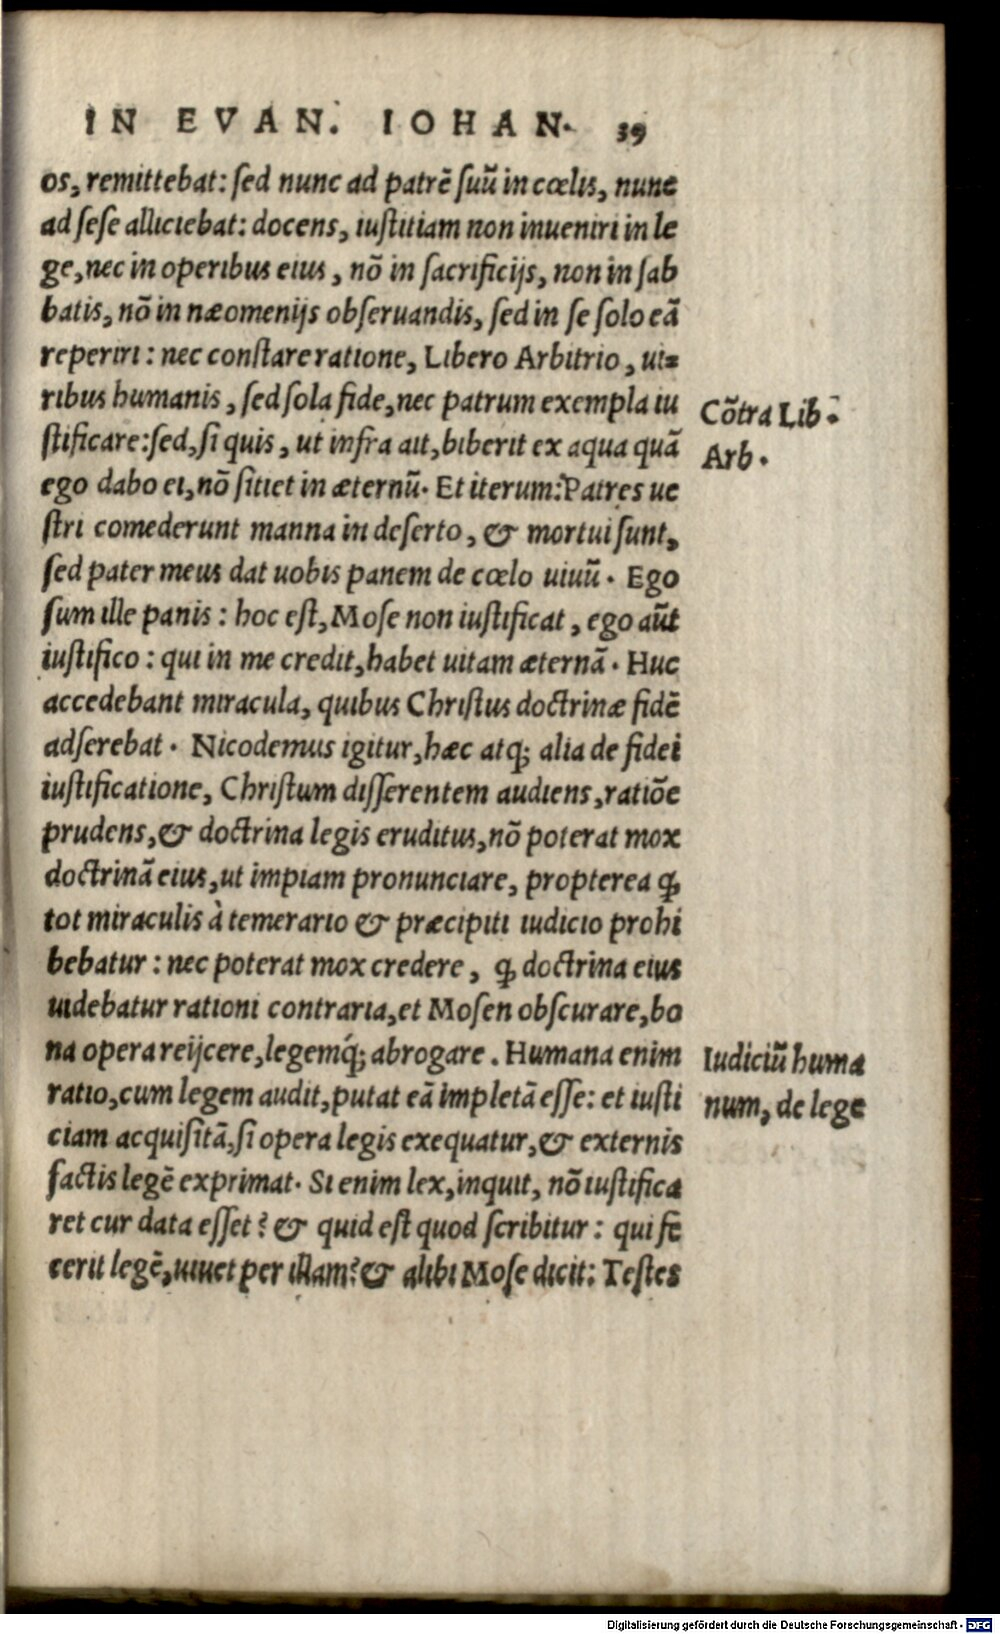 IN EVAN. IOHAN. 39
os, remittebat: ſed nunc ad patrē ſuū in cœlis, nunc
ad ſeſe alliciebat: docens, iuſtitiam non inueniri in le
ge, nec in operibus eius, nō in ſacrificijs, non in ſab
batis, nō in næomenijs obſeruandis, ſed in ſe ſolo eā
reperiri: nec conſtare ratione, Libero Arbitrio, ui=
ribus humanis, ſed ſola fide, nec patrum exempla iu
ſtificare: ſed, ſi quis, ut infra ait, biberit ex aqua quā
ego dabo ei, nō ſitiet in æternū. Et iterum: Patres ue
ſtri comederunt manna in deſerto, & mortui ſunt,
ſed pater meus dat uobis panem de cœlo uiuū. Ego
ſum ille panis: hoc eſt, Moſe non iuſtificat, ego aūt
iuſtifico: qui in me credit, habet uitam æternā. Huc
accedebant miracula, quibus Chriſtus doctrinæ fidē
adſerebat. Nicodemus igitur, hæc atq; alia de fidei
iuſtificatione, Chriſtum diſſerentem audiens, ratiōe
prudens, & doctrina legis eruditus, nō poterat mox
doctrinā eius, ut impiam pronunciare, propterea ꝙ
tot miraculis à temerario & præcipiti iudicio prohi
bebatur: nec poterat mox credere, ꝙ doctrina eius
uidebatur rationi contraria, et Moſen obſcurare, bo
na opera reijcere, legemq́; abrogare. Humana enim
ratio, cum legem audit, putat eā impletā eſſe: et iuſti
ciam acquiſitā, ſi opera legis exequatur, & externis
factis legē exprimat. Si enim lex, inquit, nō iuſtifica
ret cur data eſſet? & quid eſt quod ſcribitur: qui fe
cerit legē, uiuet per illam? & alibi Moſe dicit: Teſtes
Cōtra Lib.
Arb.
Iudiciū huma
num, de lege
Digitalisierung gefördert durch die Deutsche Forschungsgemeinschaft - DFG